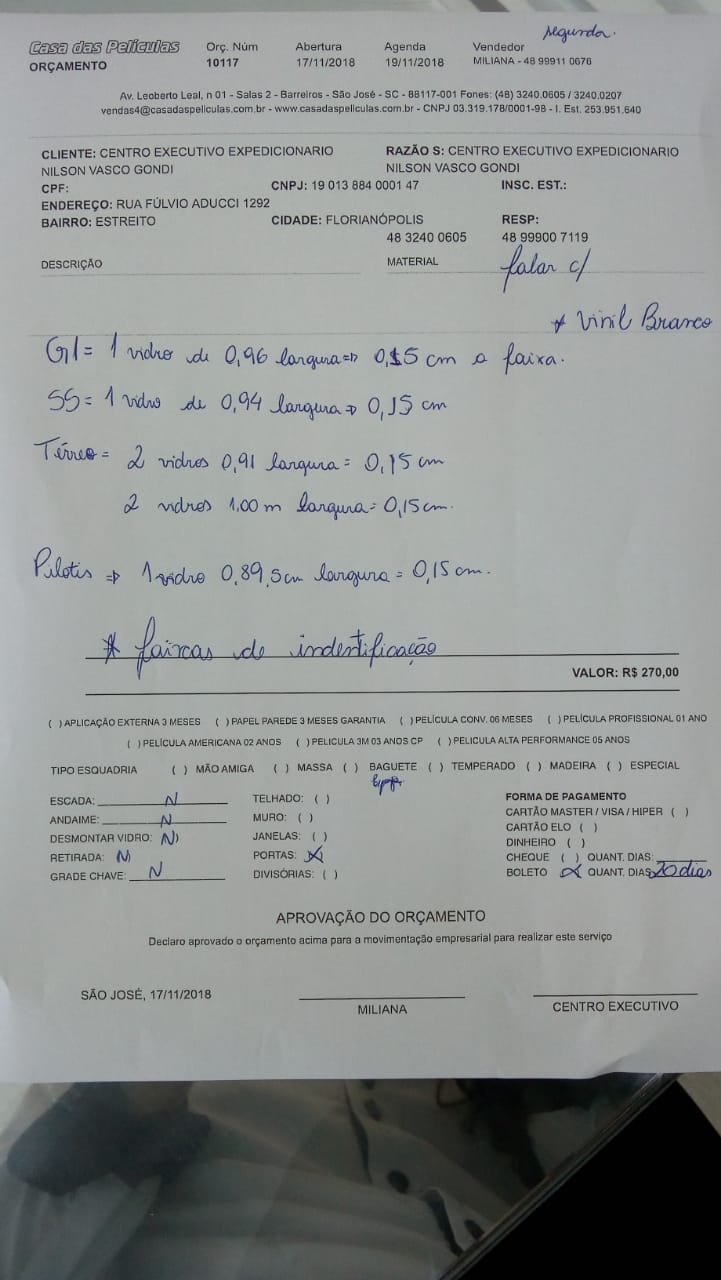 segunda.
Casa das Películas Orç. Núm Abertura Agenda Vendedor
ORÇAMENTO 10117 17/11/2018 19/11/2018 MILIANA - 48 99911 0676
Av. Leoberto Leal, n 01 - Salas 2 - Barreiros - São José - SC - 88117-001 Fones: (48) 3240.0605 / 3240.0207
vendas4@casadaspeliculas.com.br - www.casadaspeliculas.com.br - CNPJ 03.319.178/0001-98 - I. Est. 253.951.640
CLIENTE: CENTRO EXECUTIVO EXPEDICIONARIO RAZÃO S: CENTRO EXECUTIVO EXPEDICIONARIO
NILSON VASCO GONDI NILSON VASCO GONDI
CPF: CNPJ: 19 013 884 0001 47 INSC. EST.:
ENDEREÇO: RUA FÚLVIO ADUCCI 1292
BAIRRO: ESTREITO CIDADE: FLORIANÓPOLIS RESP:
48 3240 0605 48 99900 7119
DESCRIÇÃO MATERIAL falar c/
* Vinil Branco
G1 = 1 vidro de 0,96 largura => 0,15 cm a faixa.
SS = 1 vidro de 0,94 largura => 0,15 cm
Térreo = 2 vidros 0,91 largura = 0,15 cm
2 vidros 1,00 m largura = 0,15 cm.
Pilotis => 1 vidro 0,89,5cm largura = 0,15 cm.
* faixas de indentificação
VALOR: R$ 270,00
( ) APLICAÇÃO EXTERNA 3 MESES ( ) PAPEL PAREDE 3 MESES GARANTIA ( ) PELÍCULA CONV. 06 MESES ( ) PELÍCULA PROFISSIONAL 01 ANO
( ) PELÍCULA AMERICANA 02 ANOS ( ) PELICULA 3M 03 ANOS CP ( ) PELICULA ALTA PERFORMANCE 05 ANOS
TIPO ESQUADRIA ( ) MÃO AMIGA ( ) MASSA ( ) BAGUETE ( ) TEMPERADO ( ) MADEIRA ( ) ESPECIAL
ESCADA: N TELHADO: ( ) FORMA DE PAGAMENTO
ANDAIME: N MURO: ( ) CARTÃO MASTER / VISA / HIPER ( )
DESMONTAR VIDRO: (N) JANELAS: ( ) CARTÃO ELO ( )
DINHEIRO ( )
RETIRADA: N PORTAS: (X) CHEQUE ( ) QUANT. DIAS:
GRADE CHAVE: N DIVISÓRIAS: ( ) BOLETO (X) QUANT. DIAS: 20 dias
APROVAÇÃO DO ORÇAMENTO
Declaro aprovado o orçamento acima para a movimentação empresarial para realizar este serviço
SÃO JOSÉ, 17/11/2018
MILIANA CENTRO EXECUTIVO